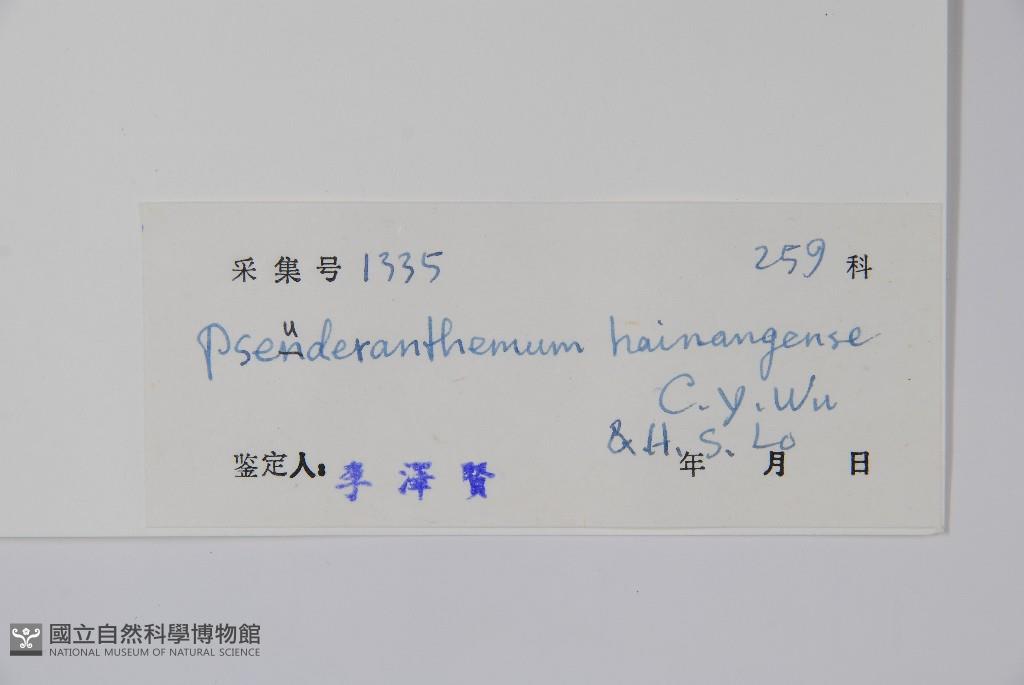 采集号 1335 259 科
Pseuderanthemum hainangense
C. Y. Wu
& H. S. Lo
鉴定人: 李澤賢 年 月 日
國立自然科學博物館
NATIONAL MUSEUM OF NATURAL SCIENCE